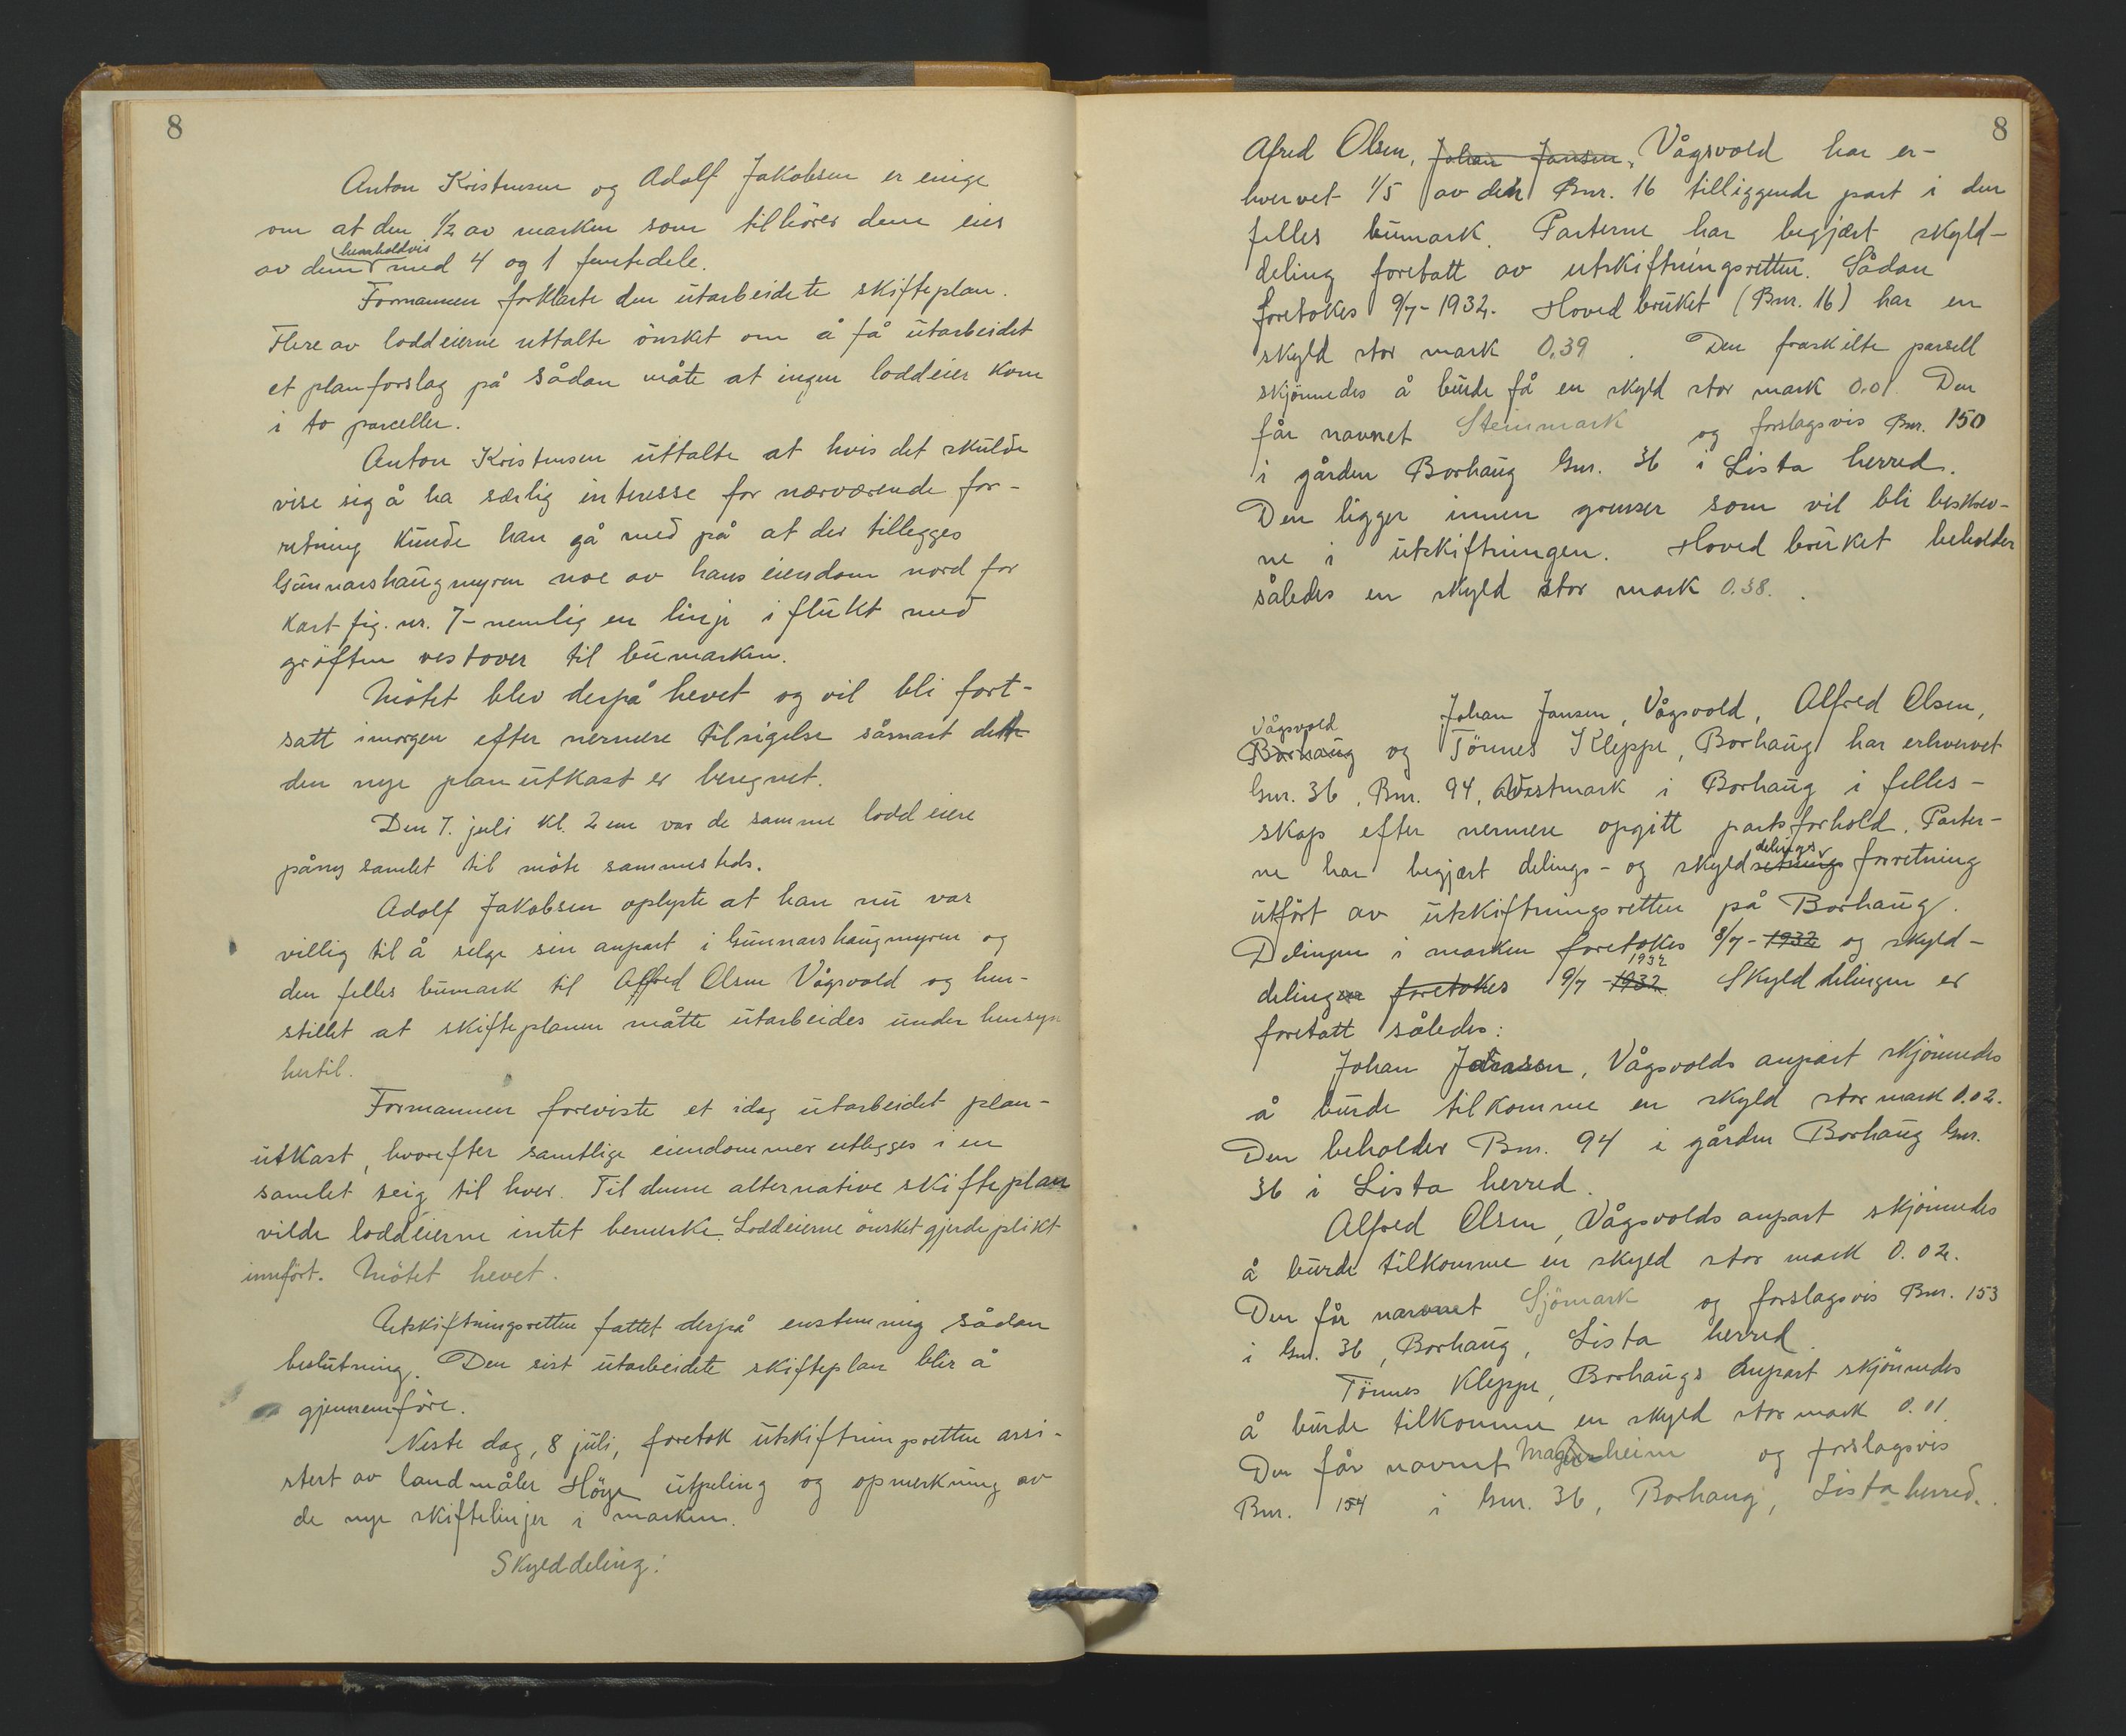 8
Anton Kristensen og Adolf Jakobsen er enige
om at den 1/2 av marken som tilhörer dem eies
henholdsvis
av dem med 4 og 1 femtedele.
Formannen forklarte den utarbeidete skifteplan.
Flere av loddeierne uttalte önsket om å få utarbeidet
et planforslag på sådan måte at ingen loddeier kom
i to parceller.
Anton Kristensen uttalte at hvis det skulde
vise sig å ha særlig interesse for nærværende for-
retning kunde han gå med på at der tillegges
Gunnarshaugmyren noe av hans eiendom nord for
kart fig. nr. 7 - nemlig en linje i flukt med
gröften vestover til bumarken.
Mötet blev derpå hevet og vil bli fort-
satt imorgen efter nermere tilsigelse såsnart dette
den nye planutkast er beregnet.
Den 7. juli kl. 2 em var de samme loddeiere
påny samlet til möte sammesteds.
Adolf Jakobsen oplyste at han nu var
villig til å selge sin anpart i Gunnarshaugmyren og
den felles bumark til Alfred Olsen Vågsvold og hen-
stillet at skifteplanen måtte utarbeides under hensyn
hertil.
Formannen foreviste et idag utarbeidet plan-
utkast, hvorefter samtlige eiendommer utlegges i en
samlet teig til hver. Til denne alternative skifteplan
vilde loddeierne intet bemerke. Loddeierne önsket gjerdeplikt
innfört. Mötet hevet.
Utskiftningsretten fattet derpå enstemmig sådan
beslutning. Den sist utarbeidete skifteplan blir å
gjennemföre.
Neste dag, 8 juli, foretok utskiftningsretten assi-
stert av landmåler Höye utpeling og opmerkning av
de nye skiftelinjer i marken.
Skylddeling:
8
Afred Olsen, Johan Jansen, Vågsvold har er-
hvervet 1/5 av den Bnr. 16 tilliggende part i den
felles bumark. Parterne har begjært skyld-
deling foretatt av utskiftningsretten. Sådan
foretokes 9/7 - 1932. Hovedbruket (Bnr. 16) har en
skyld stor mark 0,39. Den fraskilte parsell
skjönnedes å burde få en skyld stor mark 0.01. Den
får navnet Steinmark og forslagsvis Bnr. 150
i gården Borhaug Gnr. 36 i Lista herred.
Den ligger innen grenser som vil bli beskrev-
ne i utskiftningen. Hovedbruket beholder
således en skyld stor mark 0.38.
Johan Jansen, Vågsvold, Alfred Olsen,
Vågsvold
Borhaug og Tönnes Kleppe, Borhaug har erhvervet
Gnr. 36, Bnr. 94, Avestmark i Borhaug i felles-
skap efter nermere opgitt partsforhold. Parter-
delings
ne har begjært delings- og skyldsetnings forretning
utfört av utskiftningsretten på Borhaug.
Delingen i marken foretokes 8/7 - 1932 og skyld-
1932
delingen foretokes 9/7 - 1932. Skylddelingen er
foretatt således:
Johan Jansen, Vågsvolds anpart skjönnedes
å burde tilkomme en skyld stor mark 0.02.
Den beholder Bnr. 94 i gården Borhaug Gnr.
36 i Lista herred.
Alfred Olsen, Vågsvolds anpart skjönnedes
å burde tilkomme en skyld stor mark 0.02.
Den får navnet Sjömark og forslagsvis Bnr. 153
i Gnr. 36, Borhaug, Lista herred
Tönnes Kleppe, Borhaugs anpart skjönnedes
å burde tilkomme en skyld stor mark 0.01.
Den får navnet og forslagsvis
Bnr. 154 i Gnr. 36, Borhaug, Lista herred.